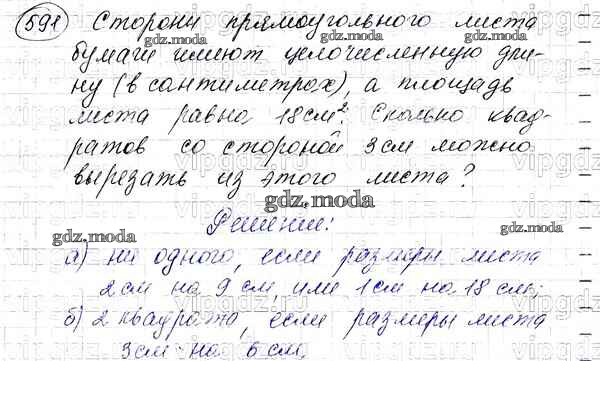 591 Стороны прямоугольного листа
бумаги имеют целочисленную дли-
ну (в сантиметрах), а площадь
листа равна 18 см². Сколько квад-
ратов со стороной 3 см можно
вырезать из этого листа?
gdz.moda
Решение:
а) ни одного, если размеры листа
2 см на 9 см, или 1 см на 18 см;
б) 2 квадрата, если размеры листа
3 см на 6 см.